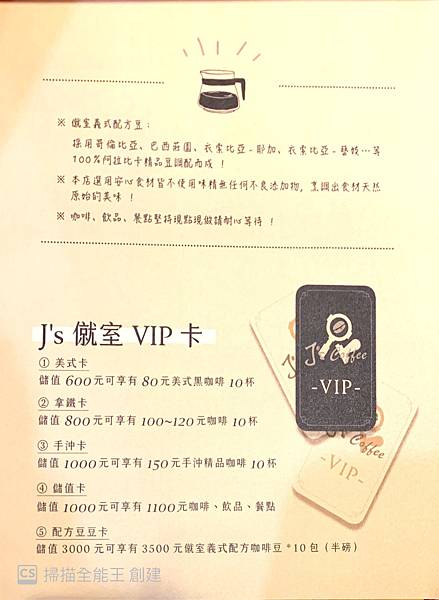 ※ 僦室義式配方豆：
採用哥倫比亞、巴西莊園、衣索比亞-耶加、衣索比亞-藝妓…等
100%阿拉比卡精品豆調配而成！
※ 本店選用安心食材皆不使用味精無任何不良添加物，烹調出食材天然
原始的美味！
※ 咖啡、飲品、餐點堅持現點現做請耐心等待！
J's 僦室 VIP 卡
J's Coffee
-VIP-
Coffee
-VIP-
① 美式卡
儲值 600 元可享有 80 元美式黑咖啡 10 杯
② 拿鐵卡
儲值 800 元可享有 100~120 元咖啡 10 杯
③ 手沖卡
儲值 1000 元可享有 150 元手沖精品咖啡 10 杯
④ 儲值卡
儲值 1000 元可享有 1100 元咖啡、飲品、餐點
⑤ 配方豆豆卡
儲值 3000 元可享有 3500 元僦室義式配方咖啡豆 *10 包（半磅）
CS 掃描全能王 創建